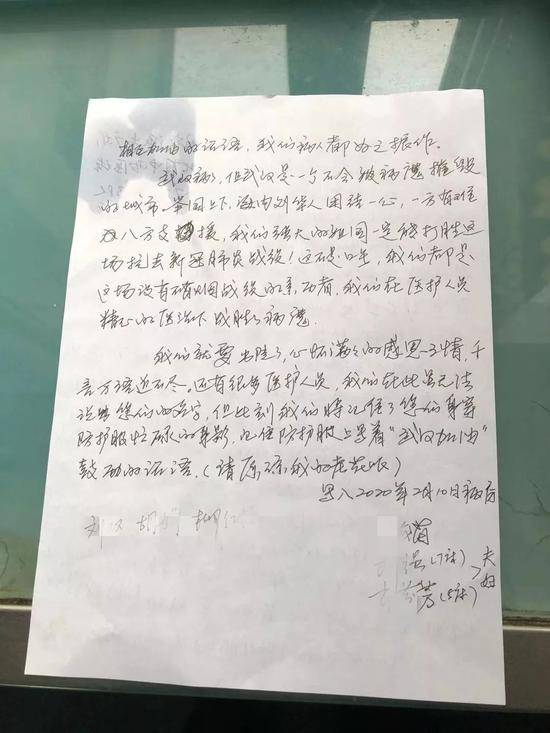 相互加油的话语，我们病人都为之振作。
武汉病了，但武汉是一个不会被病魔摧毁
的城市。举国上下，海内外华人团结一心，一方有难
八方支援，我们强大的祖国一定能打胜这
场抗击新冠肺炎战役！这不是口号，我们都是
这场没有硝烟战役的亲历者，我们在医护人员
精心的医治下战胜了病魔。
我们就要出院了，心怀满满的感恩之情，千
言万语道不尽。还有很多医护人员，我们在此无法
说出您们的名字，但此刻我们将记住了您们身穿
防护服忙碌的身影，记住防护服上写着“武汉加油”
鼓励的话语。（请原谅我的老花眼）
写入2020年2月10日病房
刘 胡
(7床) 夫
芳(5床) 妇